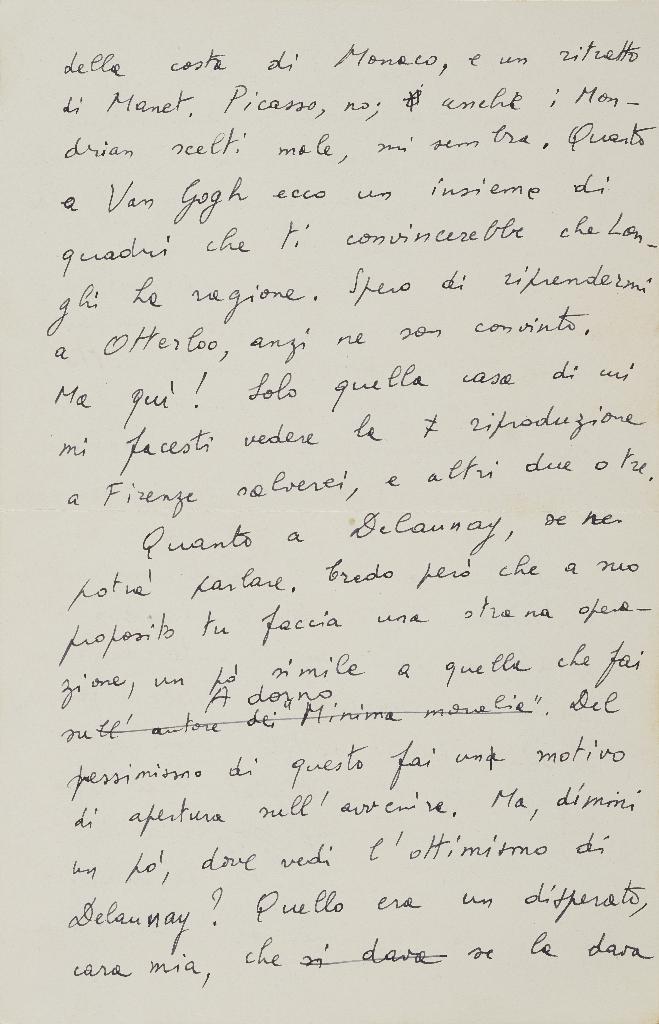 della costa di Monaco, e un ritratto
di Manet. Picasso, no; anche i Mon-
drian scelti male, mi sembra. Quanto
a Van Gogh ecco un insieme di
quadri che ti convincerebbe che Lon-
ghi ha ragione. Spero di riprendermi
a Otterloo, anzi ne son convinto.
Ma qui! Solo quella casa di cui
mi facesti vedere la riproduzione
a Firenze salverei, e altri due o tre.
Quanto a Delaunay, se ne
potrà parlare. Credo però che a suo
proposito tu faccia una strana opera-
zione, un pò simile a quella che fai
Adorno
sull' autore dei "Minima moralia". Del
pessimismo di questo fai un motivo
di apertura sull' avvenire. Ma, dimmi
un pò, dove vedi l'ottimismo di
Delaunay? Quello era un disperato,
cara mia, che si dava se la dava